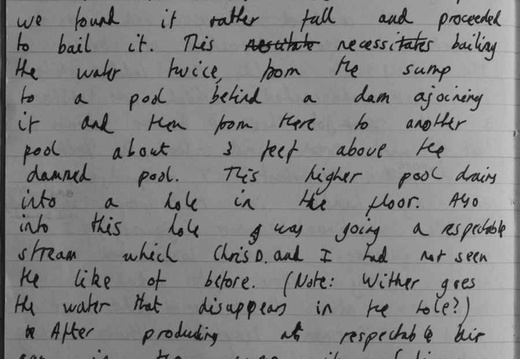 we found it rather full and proceeded
to bail it. This necessitates bailing
the water twice, from the sump
to a pool behind a dam ajoining
it and then from there to another
pool about 3 feet above the
dammed pool. This higher pool drains
into a hole in the floor. Also
into this hole was going a respectable
stream which Chris D. and I had not seen
the like of before. (Note: Wither goes
the water that disappears in the hole?)
After producing a respectable air